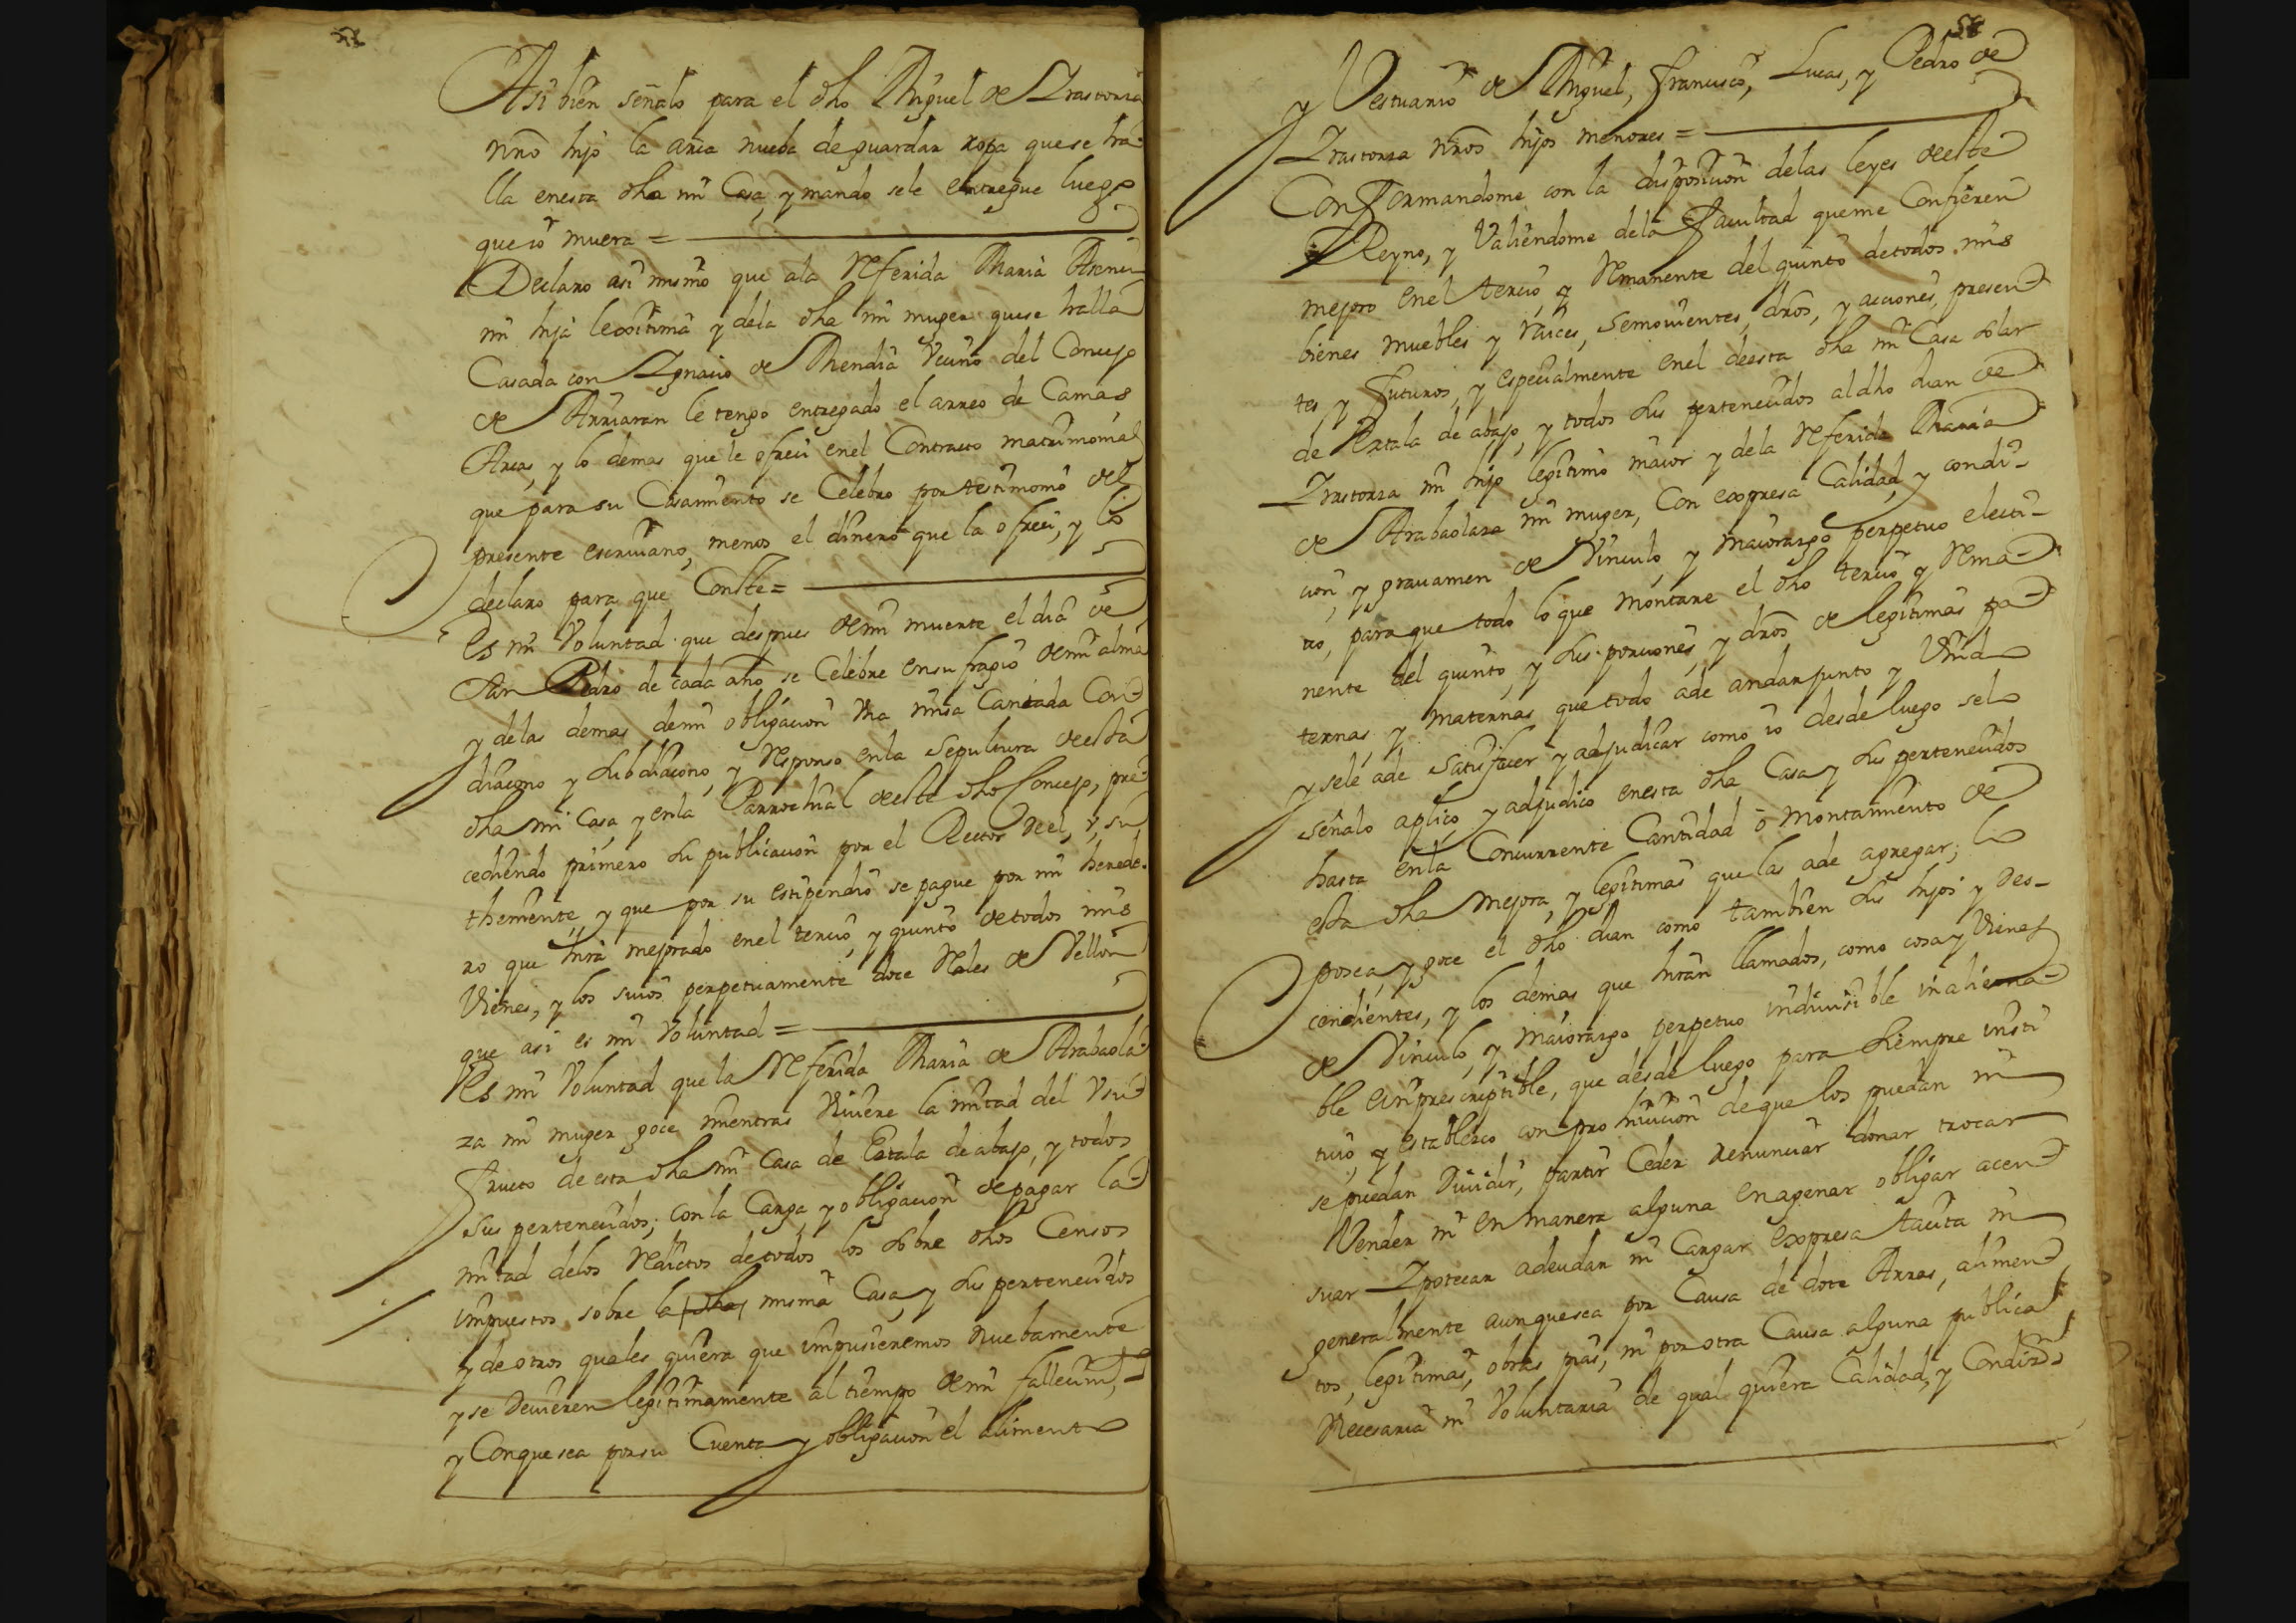 Asi bien señalo para el dho Miguel de Yrastorza
nro hijo la arca nueba de guardar ropa que se ha-
lla enesta dha mi Casa, y mando sele entregue luego
que io muera =
Declaro asi mismo que ala Referida Maria
mi hija lexitima y dela dha mi muger que se halla
Casada con Ygnacio de Mendia Vecino del Concejo
de Arriaran le tengo entregado el arreo de Camas
Arcas, y lo demas que le ofreci enel Contracto matrimonial
que para su Casamiento se Celebro por testimonio del
presente escrivano, menos el dinero que la ofreci, y lo
declaro para que Conste =
Es mi Voluntad que despues demi muerte el dia de
San Pedro de cada año se Celebre ensufragio demi alma
y delas demas demi obligacion Vna missa Cantada Con
diacono y subdiacono, y Responso enla sepultura deesta
dha mi Casa, y enla Parrochial deeste dho Concejo, pre
cediendo primero su publicacion por el Rector deel,
themente, y que por su estipendio se pague por mi herede-
ro que hira mejorado enel tercio, y quinto de todos mis
Vienes, y los suios perpetuamente doce Reales de Vellon
que asi es mi Voluntad =
Es mi Voluntad que la Referida Maria de Arabaola-
za mi muger goce mientras Viviere la mitad del Vsu
fructo de esta dha mi Casa de Extala de abajo, y todos
sus pertenecidos; con la Carga, y obligacion de pagar la
mitad delos Reditos de todos los sobre dhos Censos
impuestos sobre la dha misma Casa, y sus pertenecidos
y de otros quales quiera que impusieremos nuebamente
y se devieren legitimamente al tiempo demi fallecim,to
y Conque sea por su Cuenta y obligacion el alimento
54
y Vestuario de Miguel, Francisco, Lucas, y Pedro de
Yrastorza nros hijos menores =
Conformandome con la disposicion delas leyes deeste
Reyno, y Valiendome dela Facultad queme Confieren
mejoro enel tercio, y Remanente del quinto detodos mis
bienes muebles y raices, semovientes, dros, y acciones, presen
tes y futuros, y especialmente enel deesta dha mi Casa solar
de Extala de abajo, y todos sus pertenecidos al dho Juan de
Yrastorza mi hijo legitimo maior y dela Referida Maria
de Arabaolaza mi muger, Con expresa Calidad, y condi-
cion, y gravamen de Vinculo, y maiorazgo perpetuo electi-
vo, para que todo lo que montare el dho tercio, y Rema-
nente del quinto, y sus porciones, y dros de legitimas pa
ternas, y maternas que todo ade andar junto y Vnido
y sele ade satisfacer y adjudicar como io desde luego selo
señalo aplico, y adjudico enesta dha Casa y sus pertenecidos
hasta enla Concurrente Cantidad o montamiento de
esta dha mejora, y legitimas que las ade agregar; lo
posea, y goce el dho Juan como tambien sus hijos y des-
cendientes, y los demas que hiran llamados, como cosa y Vienes
de Vinculo, y maiorazgo perpetuo indivisible inaliena-
ble eimprescriptible, que desde luego para siempre insti
tuio, y establezco con prohivicion deque los puedan ni
se puedan Dividir, partir Ceder Renunciar donar trocar
Vender ni en manera alguna enagenar obligar acen
suar Ypotecar adeudar ni Cargar expresa tacita ni
generalmente aunque sea por Causa de dote Arras, alimen
tos, legitimas, obras pias, ni por otra Causa alguna publica
Necesaria ni Voluntaria de qual quiera Calidad, y Condizn